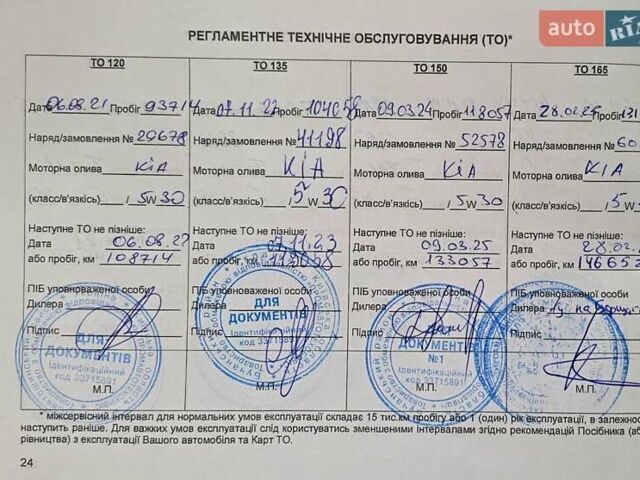 auto RIA
РЕГЛАМЕНТНЕ ТЕХНІЧНЕ ОБСЛУГОВУВАННЯ (ТО)*
ТО 120
Дата 06.08.21 Пробіг 93714
Наряд/замовлення № 29678
Моторна олива KIA
(класс/в'язкість) / 5W30
Наступне ТО не пізніше:
Дата 06.08.22
або пробіг, км 108714
ПІБ уповноваженої особи
Дилера
Підпис
М.П.
ДЛЯ ДОКУМЕНТІВ
Ідентифікаційний
код 33715891
ТО 135
Дата 07.11.22 Пробіг 104058
Наряд/замовлення № 41198
Моторна олива KIA
(класс/в'язкість) / 5W30
Наступне ТО не пізніше:
Дата 07.11.23
або пробіг, км 119058
ПІБ уповноваженої особи
Дилера
Підпис
М.П.
ДЛЯ
ДОКУМЕНТІВ
Ідентифікаційний
код 33715891
ТО 150
Дата 09.03.24 Пробіг 118057
Наряд/замовлення № 52578
Моторна олива KIA
(класс/в'язкість) / 5W30
Наступне ТО не пізніше:
Дата 09.03.25
або пробіг, км 133057
ПІБ уповноваженої особи
Дилера
Підпис
М.П.
ДЛЯ
ДОКУМЕНТІВ
№1
Ідентифікаційний
код 33715891
ТО 165
Дата 28.02.25 Пробіг 131
Наряд/замовлення № 60
Моторна олива KIA
(класс/в'язкість) / 5W
Наступне ТО не пізніше:
Дата 28.02.
або пробіг, км 146652
ПІБ уповноваженої особи
Дилера
Підпис
М.П.
* міжсервісний інтервал для нормальних умов експлуатації складає 15 тис.км пробігу або 1 (один) рік експлуатації, в залежнос
наступить раніше. Для важких умов експлуатації слід користуватись зменшеними інтервалами згідно рекомендацій Посібника (аб
рівництва) з експлуатації Вашого автомобіля та Карт ТО.
24